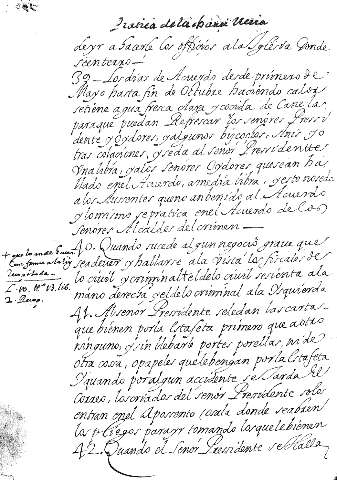 Pratica de la chancilleria
de yr a hacerle los officios a la Iglesia donde
se entierro —
39 Los dias de Acuerdo desde primero de
Mayo hasta fin de Octubre haciendo calor
se tiene agua fresca clara y cocida de Canelas
para que puedan Refrescar los señores Pressi-
dente y oydores, y algunos biscochos, Anis y o
tras colaciones, y se da al señor Presidente
Una libra, y a los Señores Oydores que se an ha-
llado en el Acuerdo, a media libra, y esto no se da
a los Ausentes que no an tenido al Acuerdo
y lo mismo se pratica en el Acuerdo de los
Senores Alcaldes del crimen —
40. Quando sucede algun negocio grave que
se a de ver y hallarse a la vista los fiscales de
lo civil y criminal el de lo civil se sienta a la
mano derecha y el del criminal a la Izquierda
41. Al señor Presidente se le dan las cartas
que bienen por la estafeta primero que a otro
ninguno, y sin llebar portes por ellas, ni de
otra cosa, o papeles que le bengan por la Estafeta
Y quando por algun accidente se tarda el
Correo, los criados del señor Presidente solo
entran en el Aposento o sala donde se abren
los pliegos para yr tomando los que le bienen
42. Quando el señor Presidente se halla
L. 10. tt. 13. lib.
2. Recop.